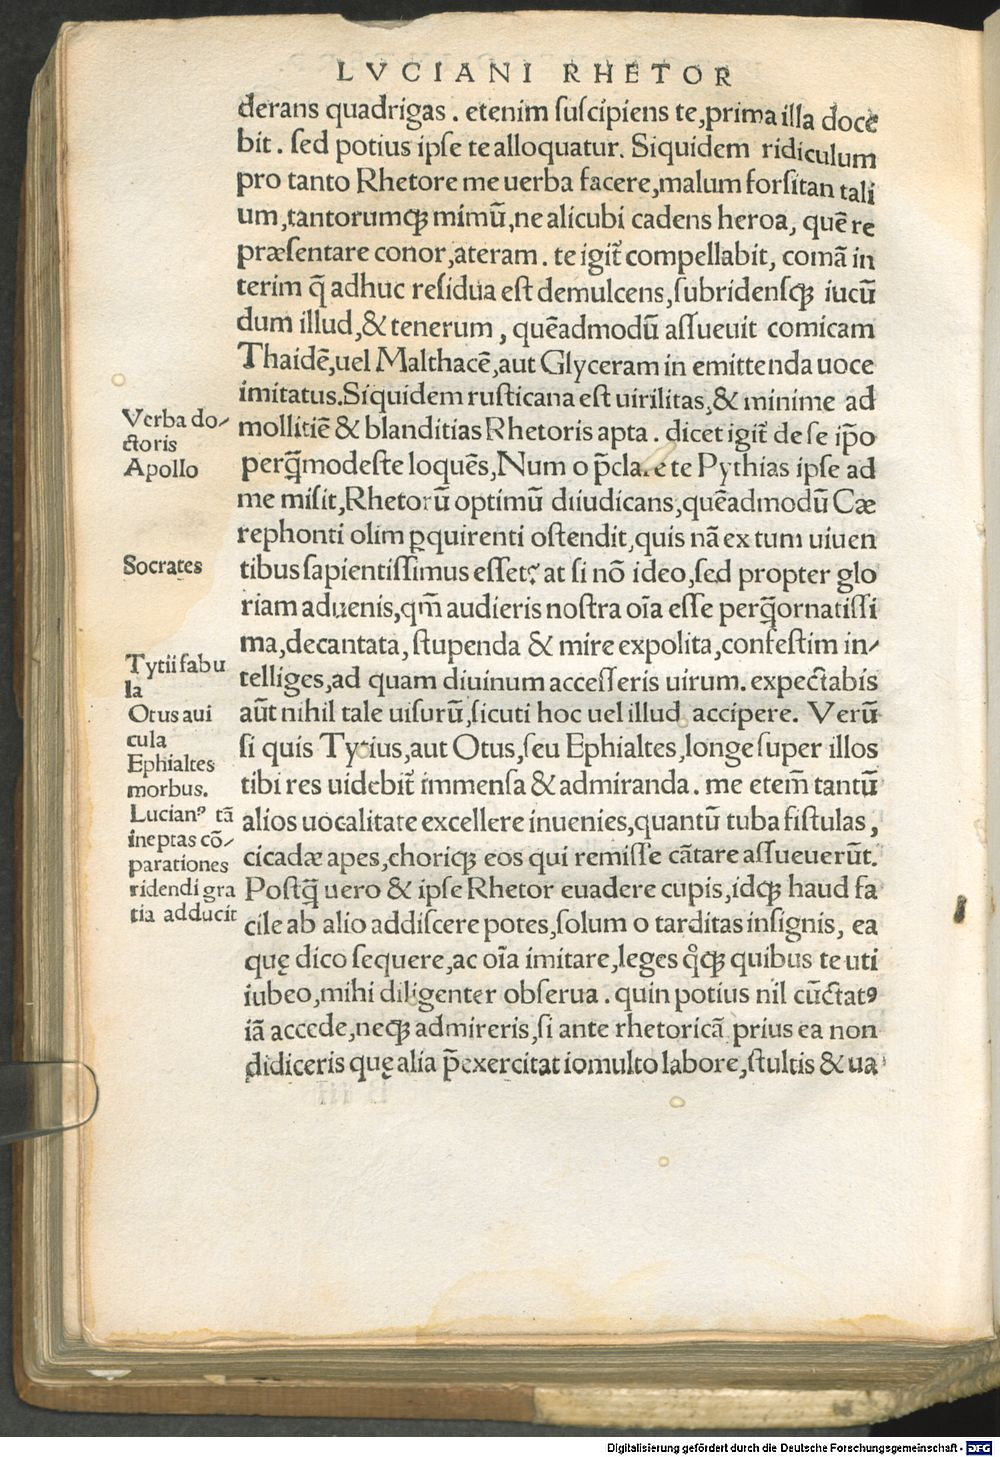 LVCIANI RHETOR
derans quadrigas . etenim ſuſcipiens te,prima illa docē
bit . ſed potius ipſe te alloquatur. Siquidem ridiculum
pro tanto Rhetore me uerba facere,malum forſitan tali
um,tantorumqꝫ mimū,ne alicubi cadens heroa, quē re
præſentare conor,ateram . te igit̄ compellabit, comā in
terim q̄ adhuc reſidua eſt demulcens,ſubridenſqꝫ iucū
dum illud,& tenerum , quēadmodū aſſueuit comicam
Thaidē,uel Malthacē,aut Glyceram in emittenda uoce
imitatus.Siquidem ruſticana eſt uirilitas,& minime ad
mollitiē & blanditias Rhetoris apta . dicet igit̄ de ſe ip̄o
perq̄modeſte loquēs,Num o p̄clare te Pythias ipſe ad
me miſit,Rhetorū optimū diiudicans,quēadmodū Cæ
rephonti olim ꝑquirenti oſtendit,quis nā ex tum uiuen
tibus ſapientiſſimus eſſet? at ſi nō ideo,ſed propter glo
riam aduenis,qm̄ audieris noſtra oīa eſſe perq̄ornatiſſi
ma,decantata, ſtupenda & mire expolita,confeſtim in/
telliges,ad quam diuinum acceſſeris uirum. expectabis
aūt nihil tale uiſurū,ſicuti hoc uel illud accipere. Verū
ſi quis Tytius,aut Otus,ſeu Ephialtes,longe ſuper illos
tibi res uidebit̄ immenſa & admiranda. me etem̄ tantū
alios uocalitate excellere inuenies,quantū tuba fiſtulas ,
cicadæ apes,choriqꝫ eos qui remiſſe cātare aſſueuerūt.
Poſtq̄ uero & ipſe Rhetor euadere cupis,idqꝫ haud fa
cile ab alio addiſcere potes,ſolum o tarditas inſignis, ea
quę dico ſequere,ac oīa imitare,leges q̊qꝫ quibus te uti
iubeo,mihi diligenter obſerua . quin potius nil cūctatꝰ
iā accede,neqꝫ admireris,ſi ante rhetoricā prius ea non
didiceris quę alia p̄exercitatio multo labore,ſtultis & ua
Verba do/
ctoris
Apollo
Socrates
Tytii fabu
la
Otus aui
cula
Ephialtes
morbus.
Lucianꝰ tā
ineptas cō/
parationes
ridendi gra
tia adducit
Digitalisierung gefördert durch die Deutsche Forschungsgemeinschaft - DFG